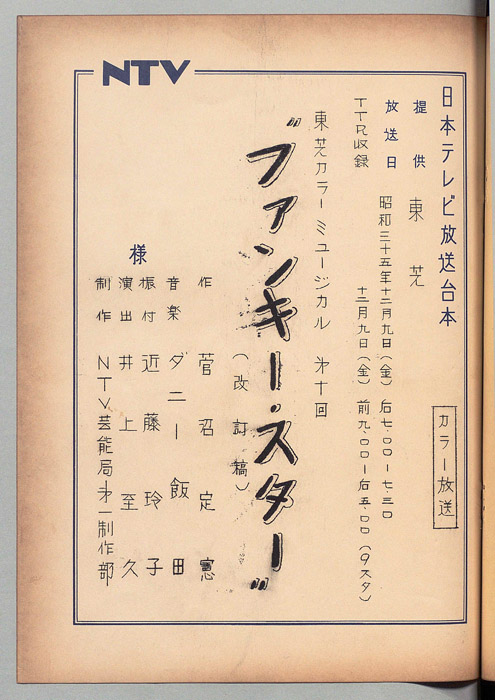 NTV
日本テレビ放送台本
カラー放送
提供 東芝
放送日 昭和三十五年十二月九日(金) 后七.〇〇ー七.三〇
TTR収録 十二月九日(金) 前九.〇〇ー后五.〇〇(9スタ)
東芝カラーミュージカル 第十回
"ファンキー・スター"
(改訂稿)
作 菅沼定憲
音楽 ダニー飯田
振付 近藤玲子
演出 井上至久
制作 NTV芸能局第一制作部
様